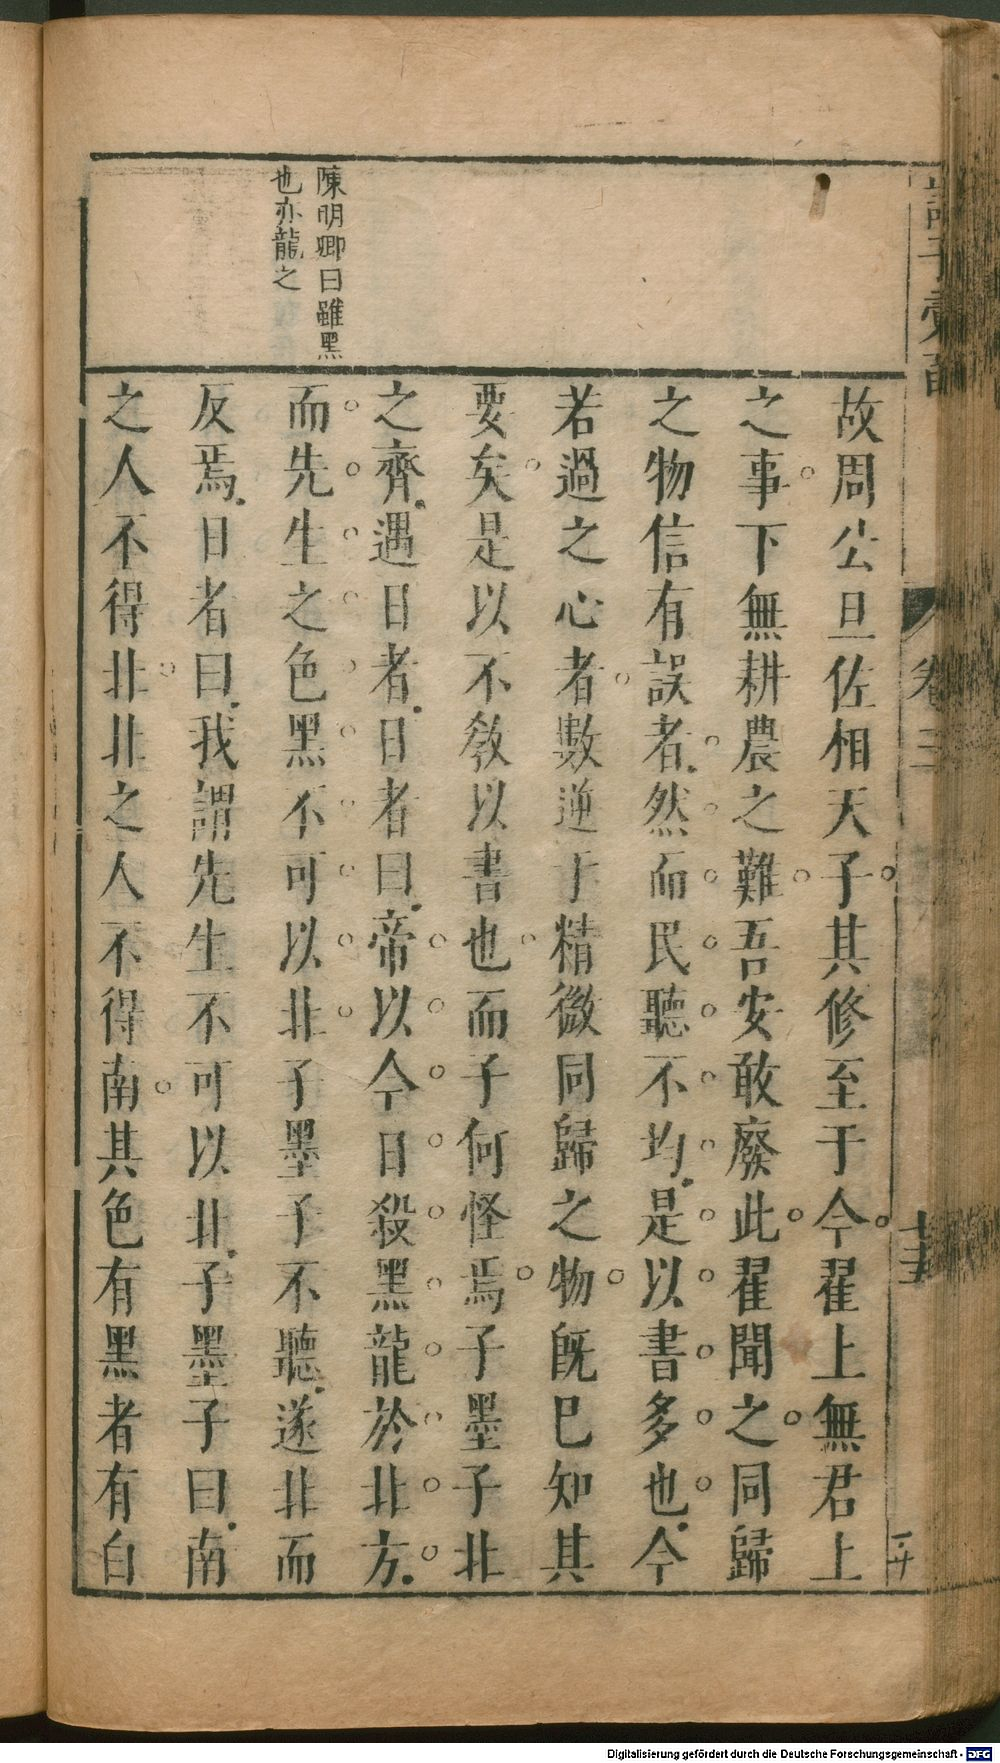 故周公旦佐相天子其修至于今翟上無君上
之事下無耕農之難吾安敢廢此翟聞之同歸
之物信有誤者然而民聽不均是以書多也今
若過之心者數逆于精微同歸之物旣巳知其
要矣是以不敎以書也而子何怪焉子墨子北
之齊遇日者日者曰帝以今日殺黑龍於北方
而先生之色黑不可以北子墨子不聽遂北而
反焉日者曰我謂先生不可以北子墨子曰南
之人不得北北之人不得南其色有黑者有白
陳明卿曰雖黑
也亦龍之
諸子彙函
卷三
十五
Digitalisierung gefördert durch die Deutsche Forschungsgemeinschaft - DFG